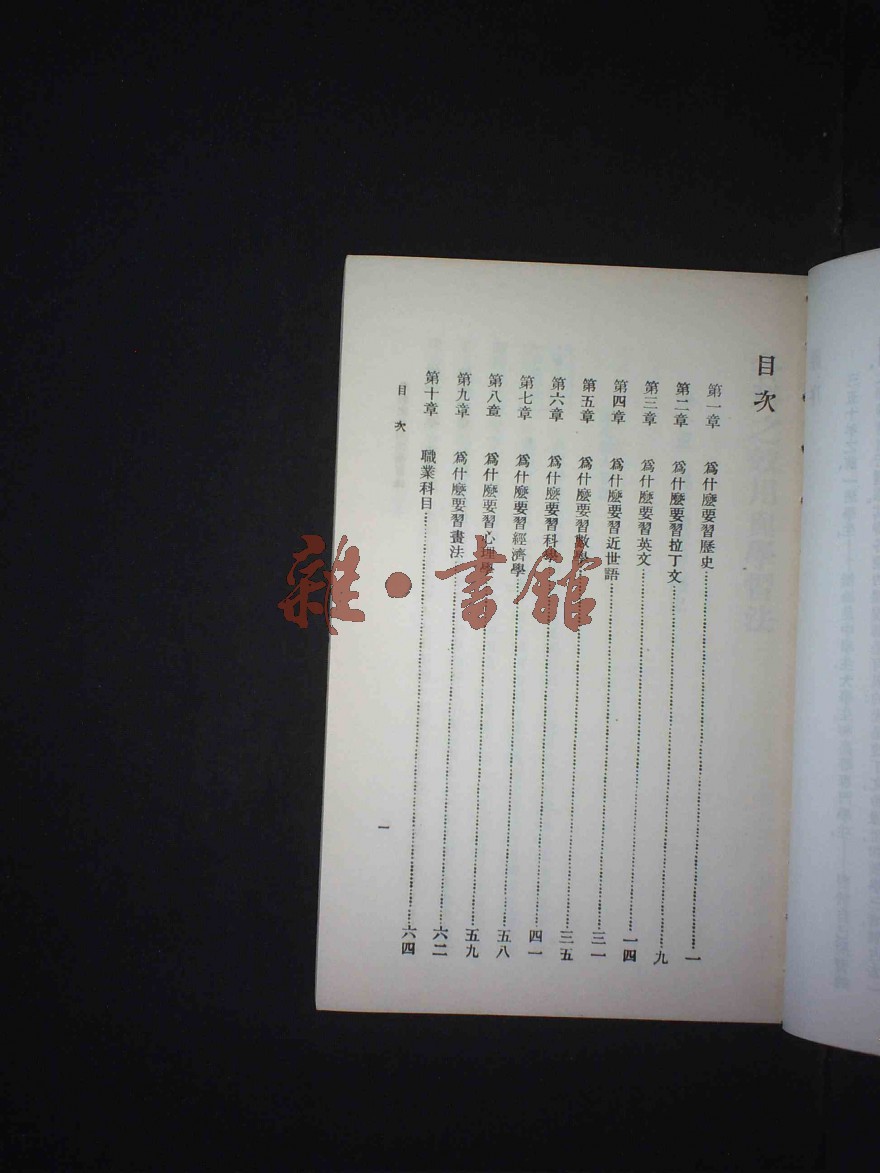 目次
第一章 爲什麼要習歷史 一
第二章 爲什麼要習拉丁文 九
第三章 爲什麼要習英文 一四
第四章 爲什麼要習近世語 三一
第五章 爲什麼要習數學 三五
第六章 爲什麼要習科學 四一
第七章 爲什麼要習經濟學 五八
第八章 爲什麼要習心理學 五九
第九章 爲什麼要習畫法 六二
第十章 職業科目 六四
目次
一
雜·書館